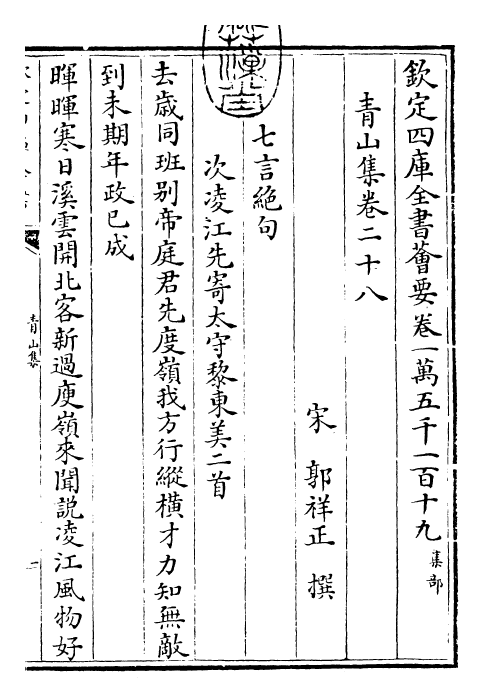 欽定四庫全書薈要卷一萬五千一百十九集部
青山集卷二十八
宋郭祥正撰
七言絶句
次凌江先寄太守黎東美二首
去歲同班别帝庭君先度嶺我方行縱横才力知無敵
到未期年政已成
暉暉寒日溪雲開北客新過庾嶺來聞説凌江風物好
青山集
一